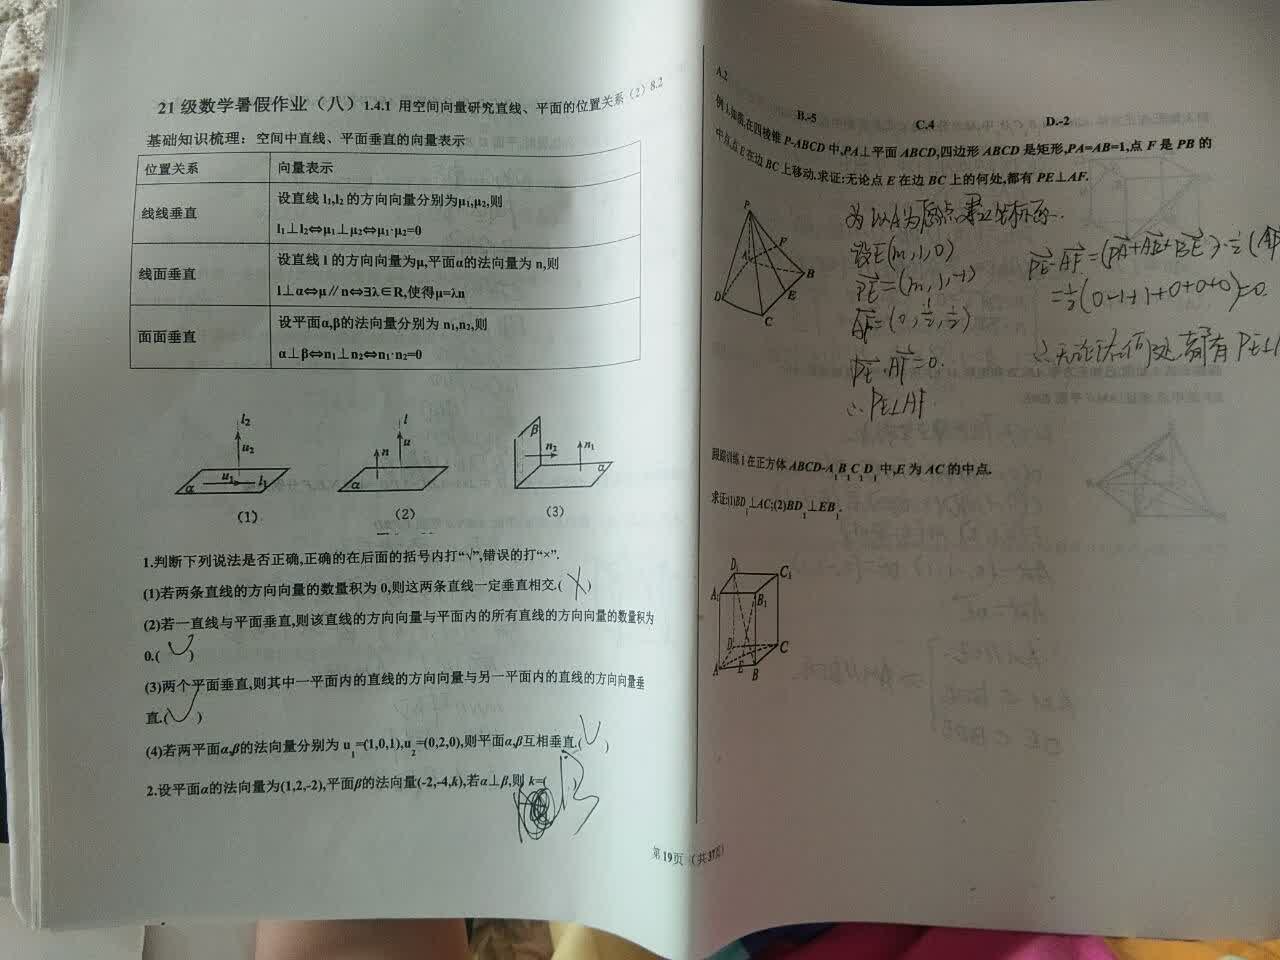 21级数学暑假作业（八）1.4.1 用空间向量研究直线、平面的位置关系（2）8.2
基础知识梳理：空间中直线、平面垂直的向量表示
位置关系 向量表示
线线垂直 设直线 l₁,l₂ 的方向向量分别为μ₁,μ₂,则
l₁⊥l₂⇔μ₁⊥μ₂⇔μ₁·μ₂=0
线面垂直 设直线 l 的方向向量为μ,平面α的法向量为 n,则
l⊥α⇔μ∥n⇔∃λ∈R,使得μ=λn
面面垂直 设平面α,β的法向量分别为 n₁,n₂,则
α⊥β⇔n₁⊥n₂⇔n₁·n₂=0
l₂ u₂ α u₁ l₁
l u n α
β n₂ n₁ α
（1） （2） （3）
1.判断下列说法是否正确,正确的在后面的括号内打“√”,错误的打“×”.
(1)若两条直线的方向向量的数量积为 0,则这两条直线一定垂直相交.( × )
(2)若一直线与平面垂直,则该直线的方向向量与平面内的所有直线的方向向量的数量积为
0.( √ )
(3)两个平面垂直,则其中一平面内的直线的方向向量与另一平面内的直线的方向向量垂
直.( √ )
(4)若两平面α,β的法向量分别为 u₁=(1,0,1),u₂=(0,2,0),则平面α,β互相垂直.( √ )
2.设平面α的法向量为(1,2,-2),平面β的法向量(-2,-4,k),若α⊥β,则 k=( )
第19页（共37页）
A.2 B.-5 C.4 D.-2
例 1.如图,在四棱锥 P-ABCD 中,PA⊥平面 ABCD,四边形 ABCD 是矩形,PA=AB=1,点 F 是 PB 的
中点,点 E 在边 BC 上移动.求证:无论点 E 在边 BC 上的何处,都有 PE⊥AF.
P A F B D E C
以A为原点建立坐标系.
设E(m,1,0)
PE=(m,1,-1)
AF=(0,½,½)
PE·AF=0.
∴PE⊥AF.
PE·AF=(PA+AB+BE)·½(
=½(0-1+1+0+0+0)=0.
∴无论E在何处都有PE⊥
跟踪训练 1 在正方体 ABCD-A₁B₁C₁D₁ 中,E 为 AC 的中点.
求证:(1)BD₁⊥AC;(2)BD₁⊥EB₁.
D₁ C₁ A₁ B₁ D C A E B